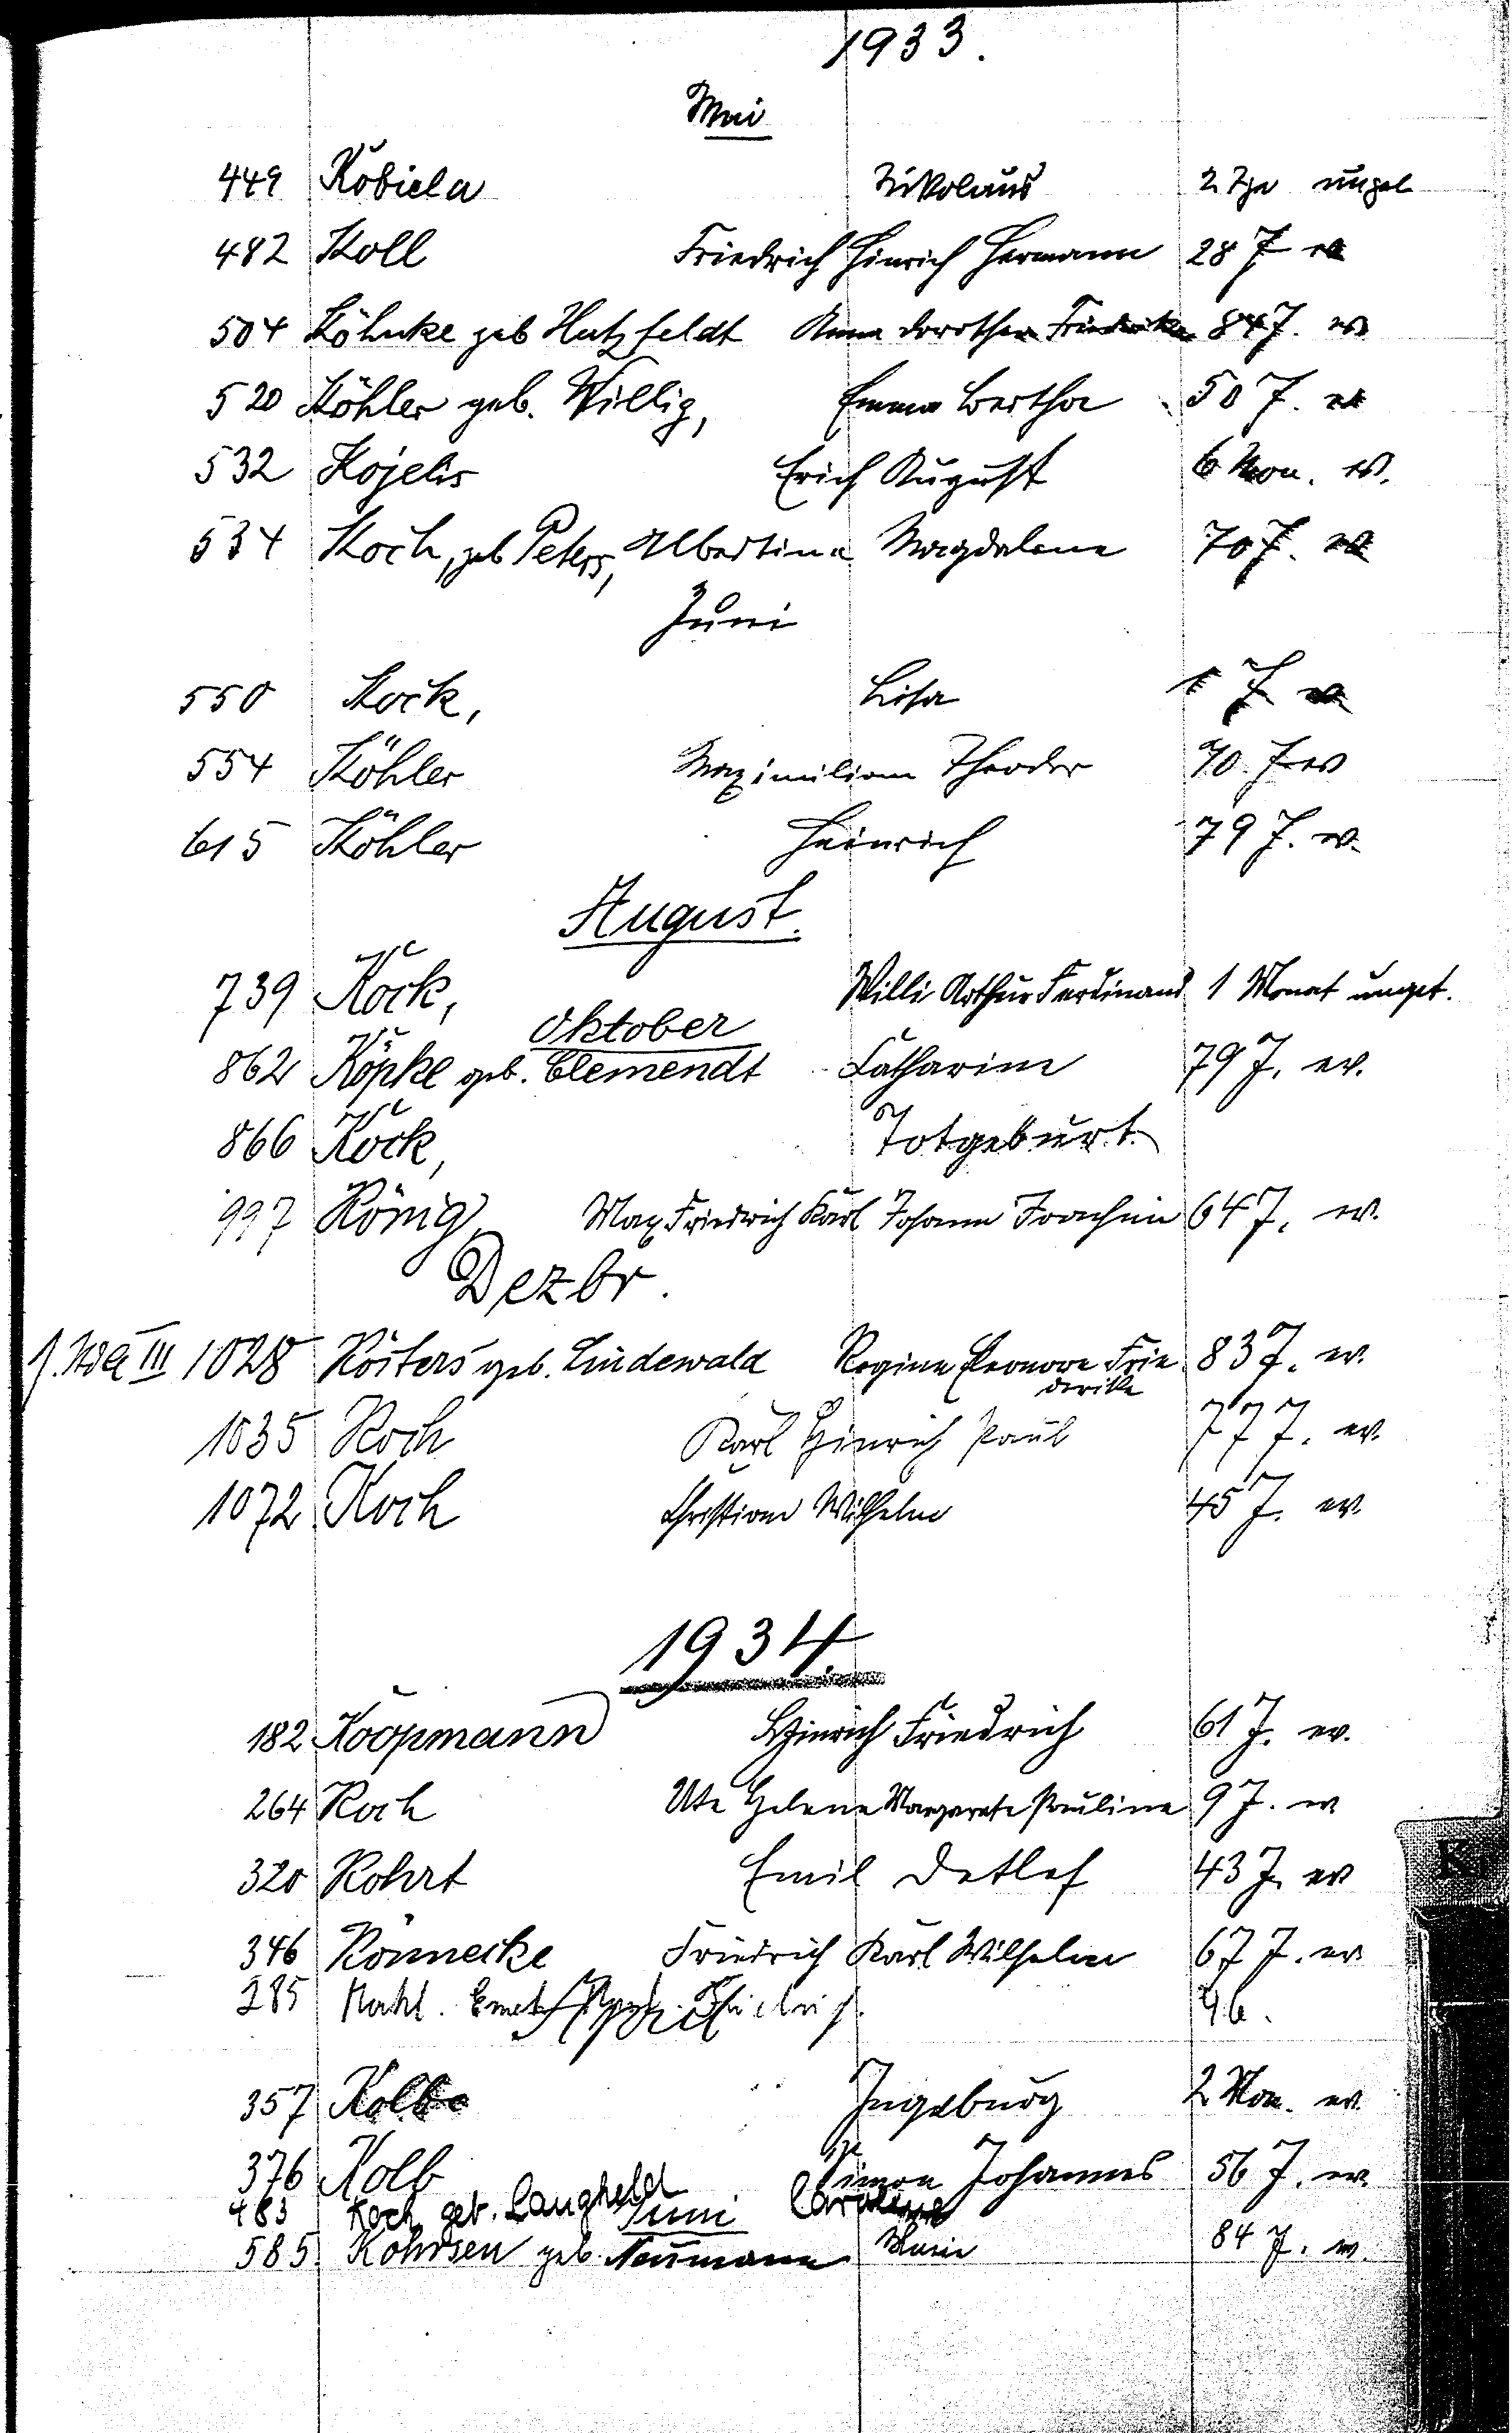 1933.
Mai
449 Kobiela Nikolaus 2 Tge unget
482 Koll Friedrich Hinrich Hermann 28 J ev
504 Köhnke geb Hatzfeldt Anna Dorothea Friederike 84 J. ev
520 Köhler geb. Willig, Emma Bertha 50 J. ev
532 Kojelis Erich August 6 Mon. ev.
534 Koch, geb Peters, Albertina Magdalene 70 J. ev
Juni
550 Kock, Lisa J ev
554 Köhler Maximiliam Theodor 70 J ev
615 Köhler Heinrich 79 J. ev.
August.
739 Kock, Willi Arthur Ferdinand 1 Monat unget.
Oktober
862 Köpke geb. Clemendt Catharine 79 J. ev.
866 Kock, Totgeburt.
997 König, Max Friedrich Karl Johann Joachim 64 J. ev.
Dezbr.
III 1028 Kösters geb. Lindewald Regine Eleonore Frie 83 J. ev.
derike
1035 Koch Karl Hinrich Paul 77 J. ev.
1072 Koch Christian Wilhelm 45 J. ev.
1934.
182 Koopmann Hinrich Friedrich 61 J. ev.
264 Koch Ute Helene Margarete Pauline 9 J. ev
320 Kohrt Emil Detlef 43 J. ev
346 Könnecke Friedrich Karl Wilhelm 67 J. ev.
285
April
357 Kolbe Ingeburg 2 Mon. ev.
376 Kolb Simon Johannes 56 J. ev.
483 Koch geb. Langheld Caroline
Juni
585. Kohrsen geb. Neumann Marie 84 J. ev
K